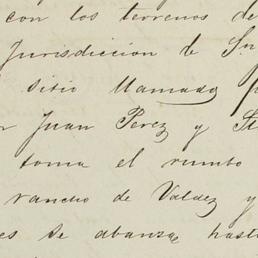 con los terrenos de
Jurisdiccion de Sn
sitio llamado
Juan Perez y
toma el rumbo
rancho de Valdez y
es se abanza hasta